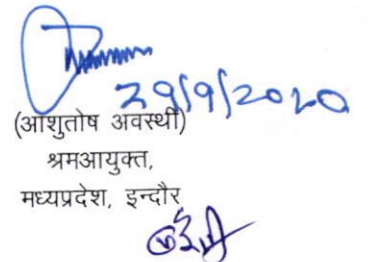 29/9/2020
(आशुतोष अवस्थी)
श्रमआयुक्त,
मध्यप्रदेश, इन्दौर